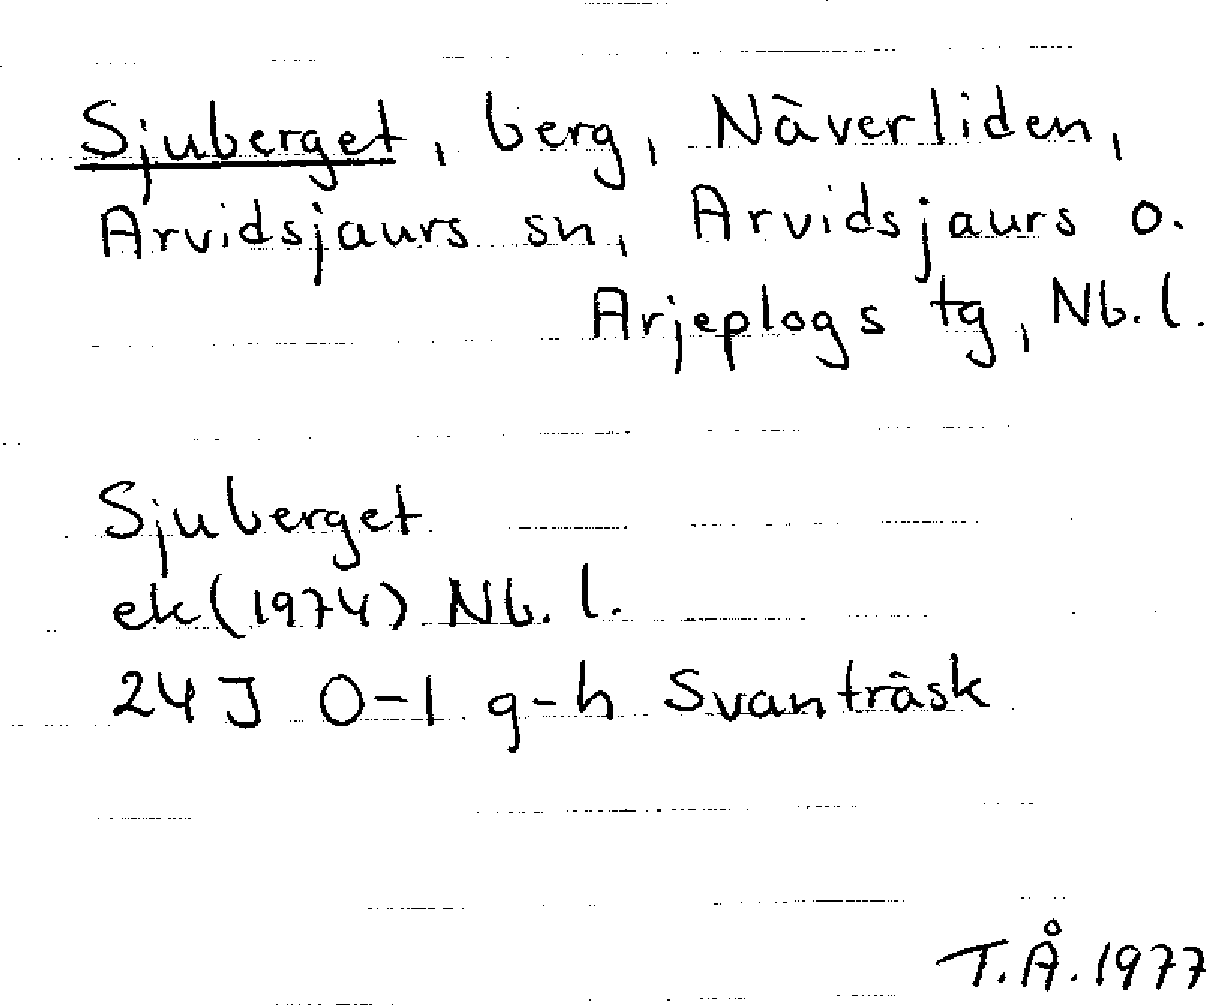 Sjuberget, berg, Näverliden,
Arvidsjaurs sn, Arvidsjaurs o.
Arjeplogs tg, Nb.l.
Sjuberget
ek (1974) Nb.l.
24J 0-1 g-h Svanträsk
T.Å. 1977